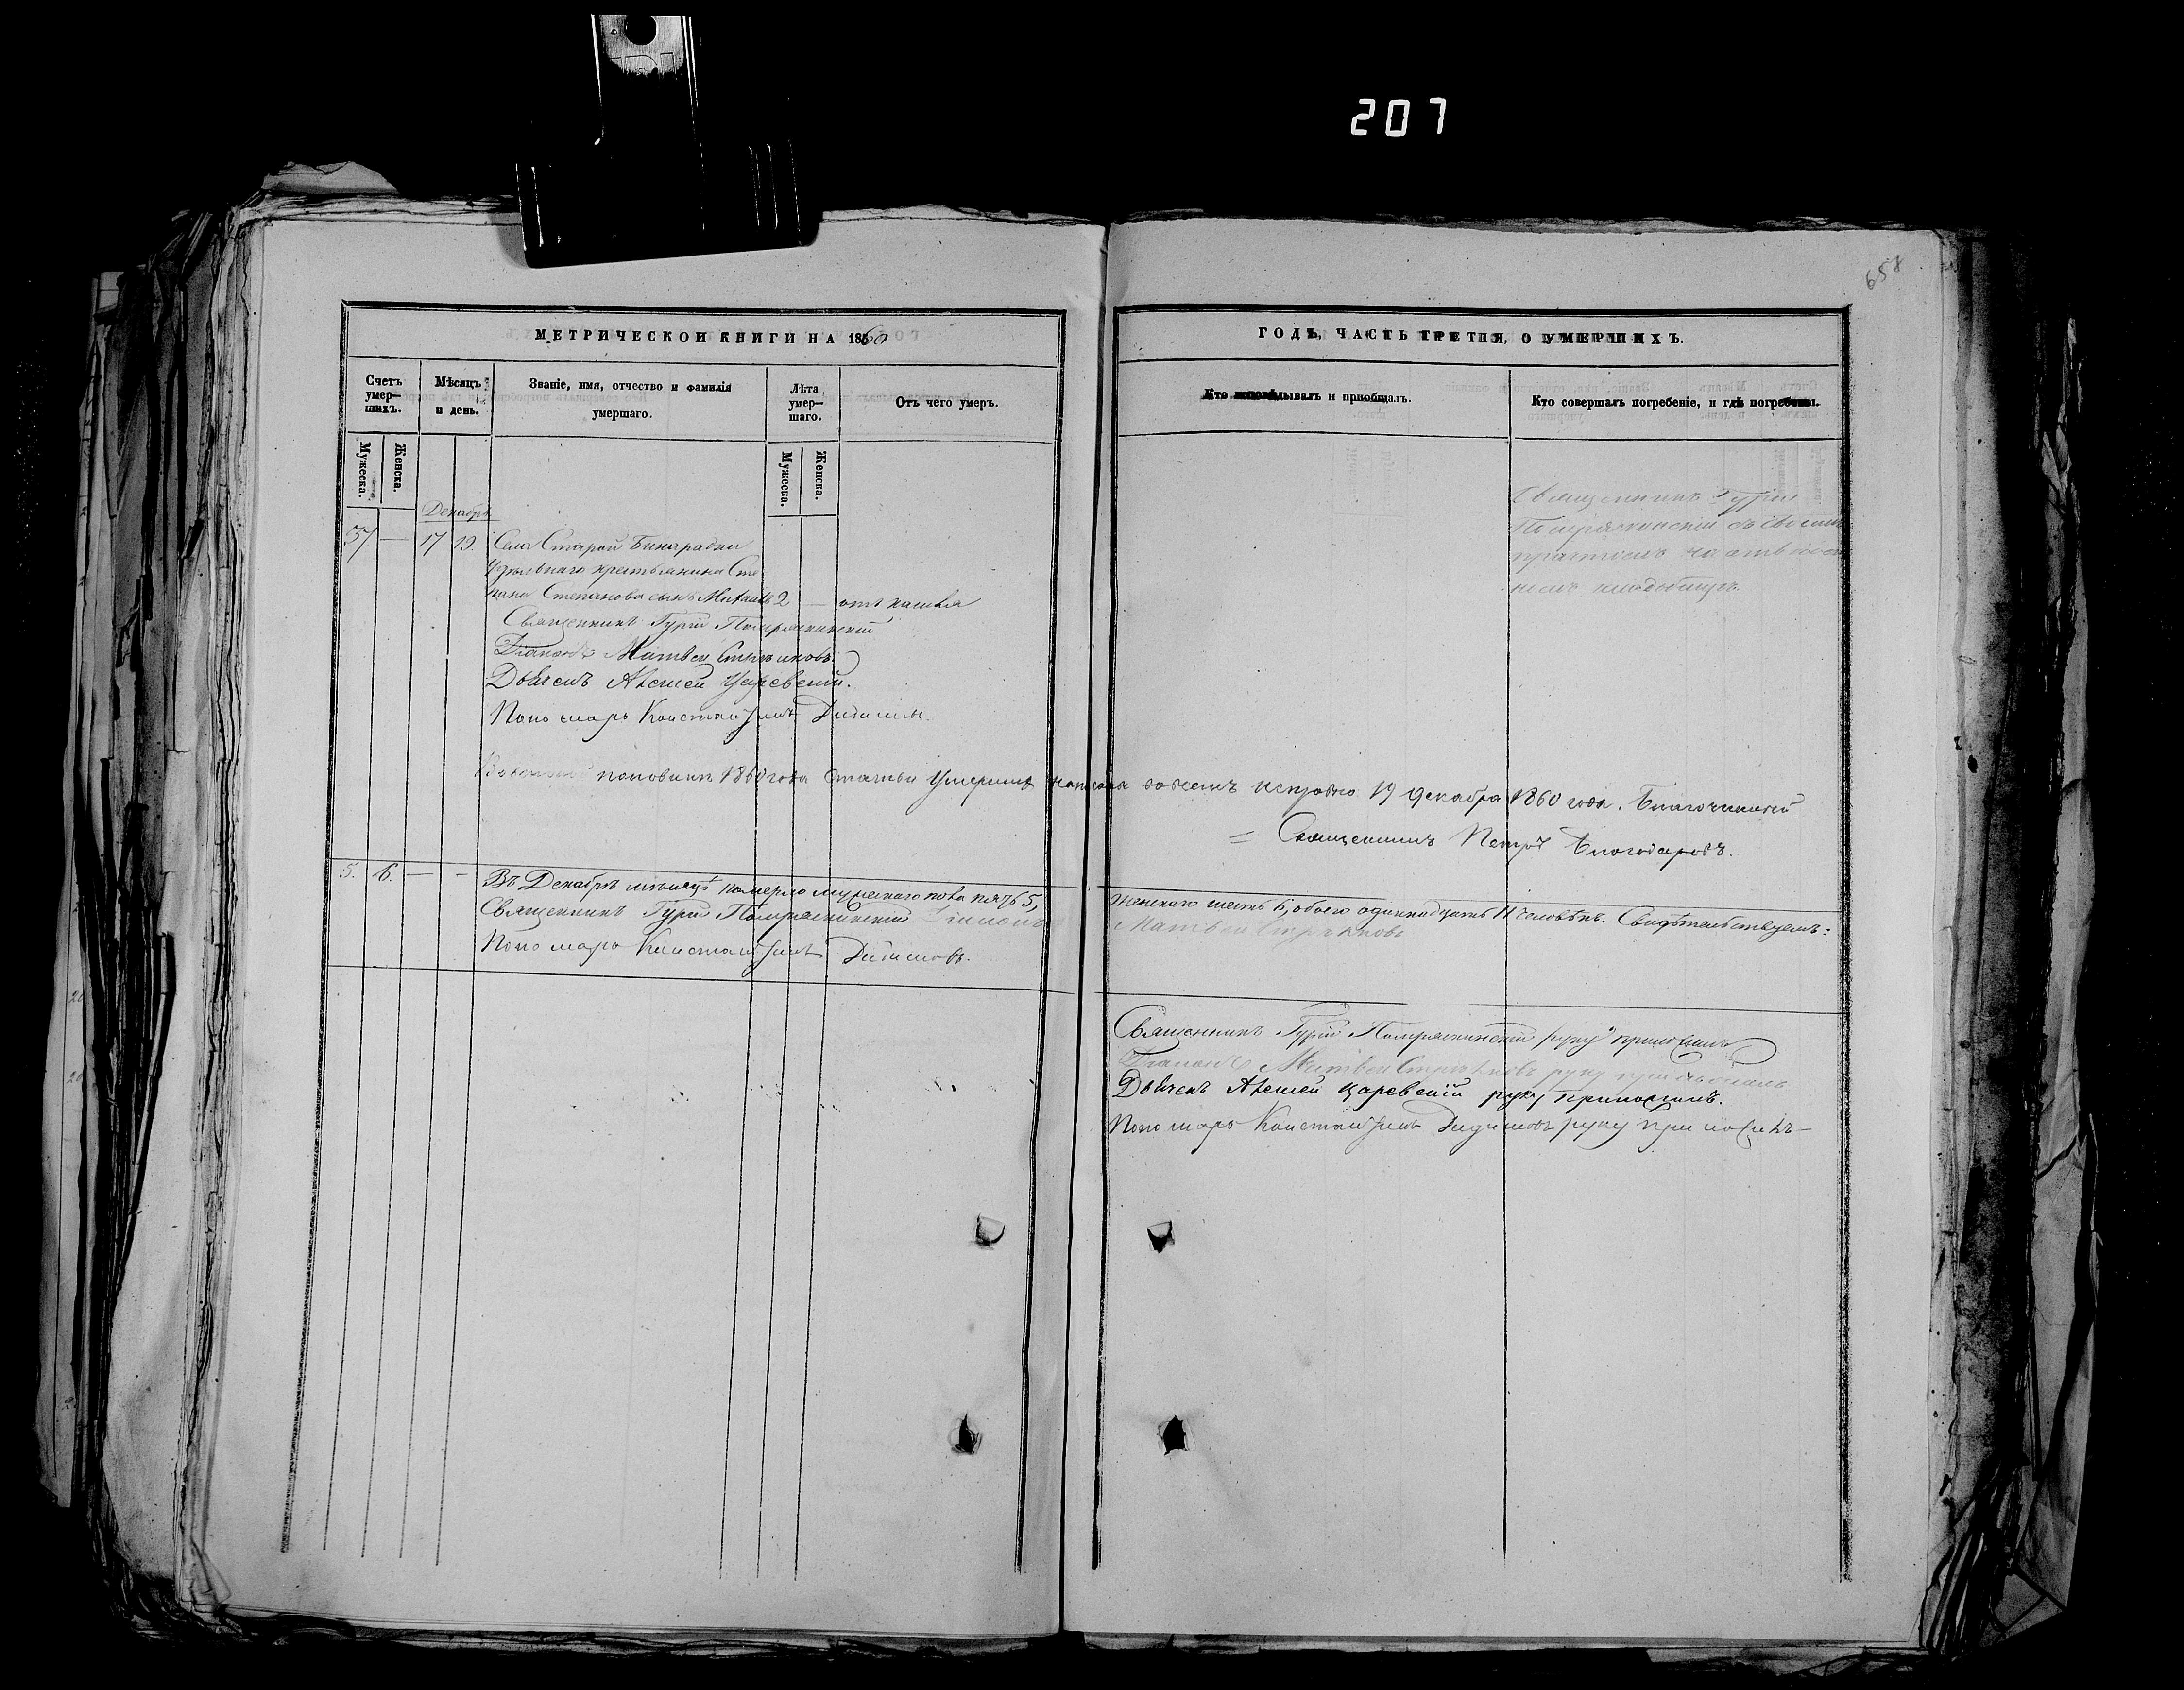 207
658
МЕТРИЧЕСКОЙ КНИГИ НА 1860
Счетъ умер–шихъ.
Мѣсяцъ и день.
Званіе, имя, отчество и фамилія умершаго.
Лѣта умер–шаго.
Отъ чего умеръ.
Мужеска.
Женска.
Мужеска.
Женска.
Декабрь
37 — 17 19. Села Старой Бинарадки
Удѣльнаго крестьянина Сте
пана Степанова сынъ Михаилъ 2 — отъ кашля
Священникъ Гурій Помряскинскій
Діаконъ Матвей Стрѣлковъ
Дьячекъ Алексей Царевскій.
Пономарь Константинъ Дидимовъ
ГОДЪ, ЧАСТЬ ТРЕТІЯ, О УМЕРШИХЪ.
Кто исповѣдывалъ и пріобщалъ.
Кто совершалъ погребеніе, и гдѣ погребены.
Священникъ Гурій
Помряскинскій съ своимъ
причтомъ на отведен
номъ кладбищѣ.
половинѣ 1860 года статьи умершихъ писаны исправно 19 Декабря 1860 года. Благочинный
= Священникъ Петръ Благодаровъ.
5. 6. — - Въ Декабрѣ мѣсяцѣ померло мужескаго пола пять 5, женскаго шесть 6, обоего одиннадцать 11 человѣкъ. Свидѣтельствуемъ:
Священникъ Гурій Помряскинскій Діаконъ Матвей Стрѣлковъ
Пономарь Константинъ Дидимовъ.
Священникъ Гурій Помряскинскій руку приложилъ
Діаконъ Матвей Стрѣлковъ руку приложилъ
Дьячекъ Алексей Царевскій руку приложилъ.
Пономарь Константинъ Дидимовъ руку приложилъ—